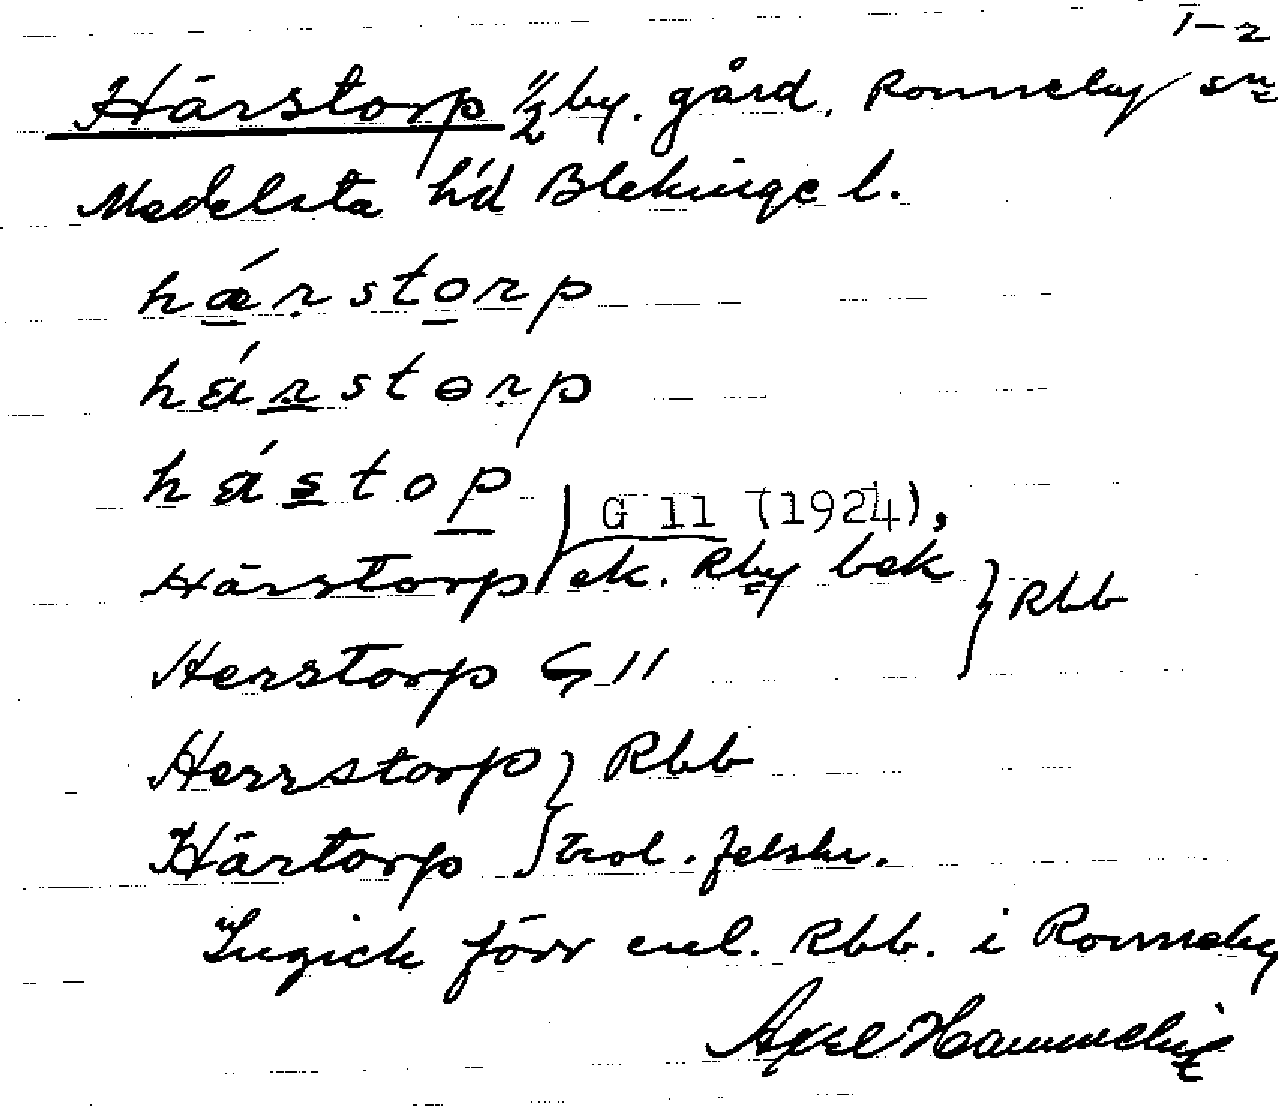 1-2
Härstorp 1/2 by. gård, Ronneby sn
Medelsta hd Blekinge l.
hǽrstorp
hárstorp
hástop
G 11 (1924),
Härstorp ek. Rby bek } Rbb
Herstorp G 11
Herrstorp } Rbb
Härtorp trol. felskr.
Ingick förr enl. Rbb. i Ronneby
Axel